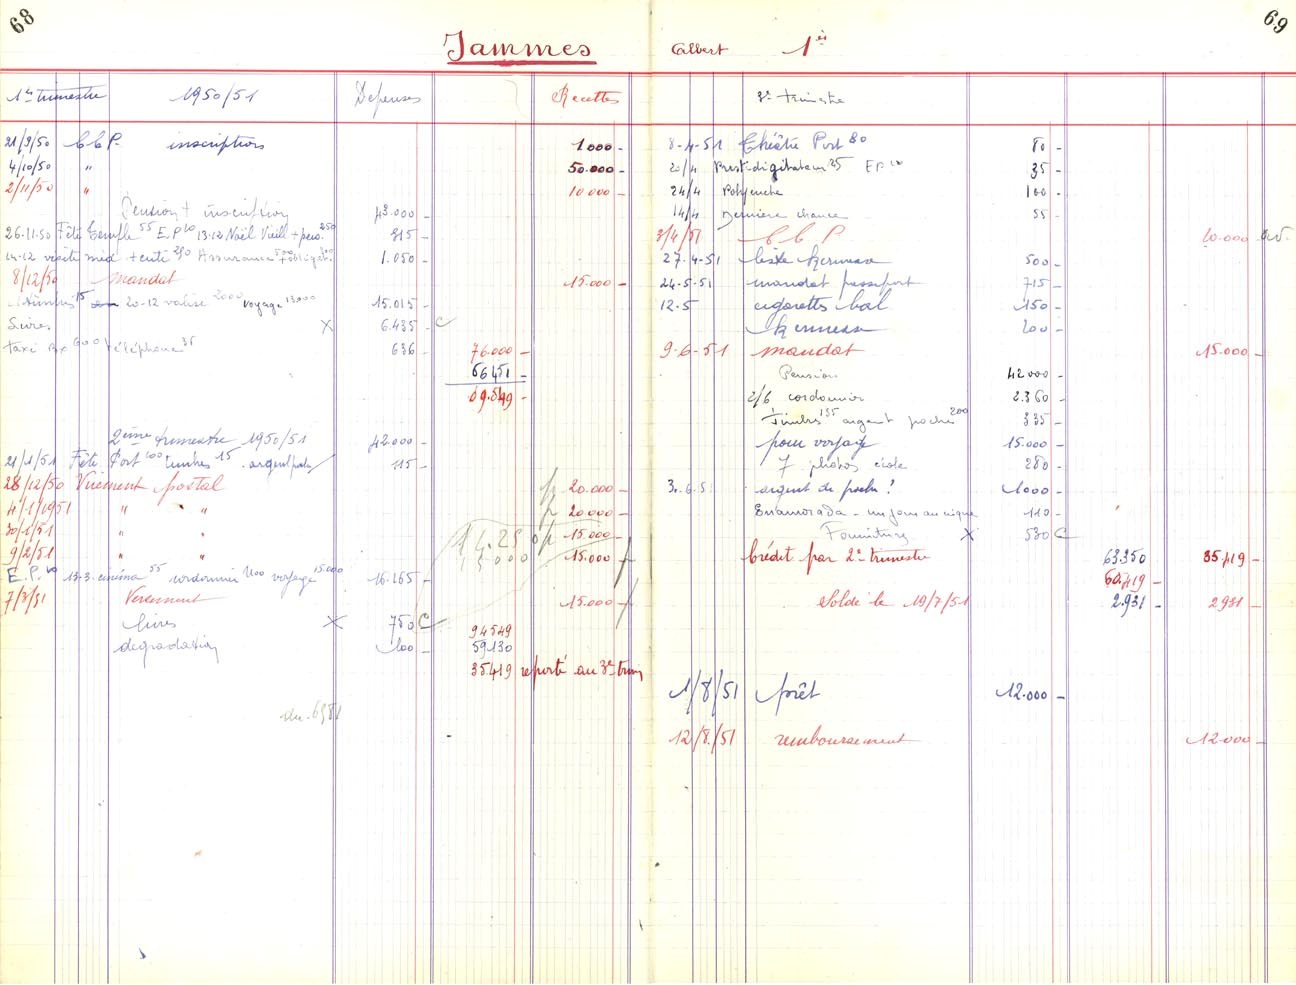 68
Jammes
1er trimestre 1950/51 Depenses Recettes
21/9/50 CCP. inscription 1000 -
4/10/50 " 50.000 -
2/11/50 " 10.000 -
Pension + inscription 43.000 -
26-11-50 Fête Temple 55 E.P 60 13-12 Noël Vieill + pens. 250 815 -
14-12 visite med + enté 250 Assurance 500 obligat. 300 1.050 -
8/12/50 mandat 15.000 -
timbres 15 20-12 valise 2000 voyage 13000 15.015 -
Livres X 6.435 - C
taxi Bx 600 téléphone 36 636 - 76.000 -
56451 -
19.549 -
2ème trimestre 1950/51 42000 -
21/1/51 Fête Port 100 timbres 15 . argent poche 115 -
28/12/50 Virement postal p 20.000 -
4/1/1951 " " p 20000 -
30/1/51 " " p 15.000 -
9/2/51 " " 15.000 -
14.250
15000
E.P. 60 13-3. cinéma 55 cordonnier 1100 voyage 15.000 16.165 -
7/3/51 Versement 15.000 -
livres X 750 C 94549
degradation 100 - 59.130
35419 reporté au 3e trim
69
Albert 1er
3e trimestre
8-4-51 Théâtre Port 80 80 -
20/4 Prestidigitateur 25 EP 10 35 -
24/4 Polyeucte 100 -
14/4 Dernière chance 55 -
3/4/51 CCP. 10.000
27-4-51 liste kermesse 500 -
24-5-51 mandat passeport 715 -
12-5 cigarettes bal 150 -
kermesse 200 -
9-6-51 mandat 15.000 -
Pension 42000 -
2/6 cordonnier 2.360 -
Timbres 135 argent poche 200 335 -
pour voyage 15.000 -
7 photos école 280 -
argent de poche ? 1000 -
Enamorada - un jour au cirque 110 -
Fourniture X 530 C
Crédit par 2e trimestre 63.350 35,419
60,419 -
Solde le 19/7/51 2.931 - 2931 -
1/8/51 prêt 12.000 -
12/8/51 remboursement 12.000 -